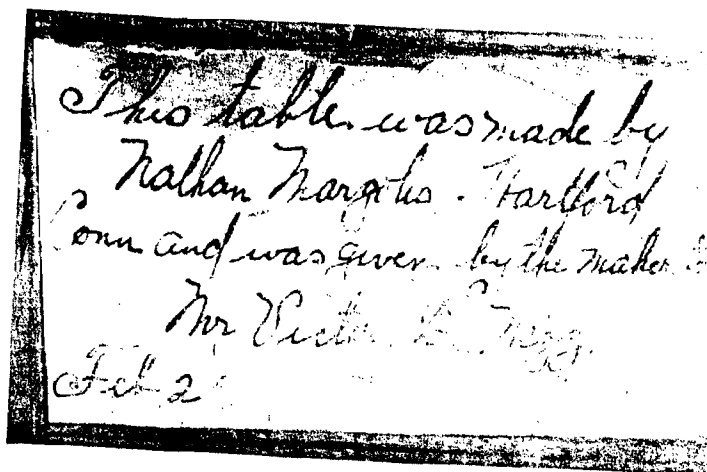 This table was made by
Nathan Margolis. Hartford
Conn and was given by the maker to
Mr Victor
Feb 2